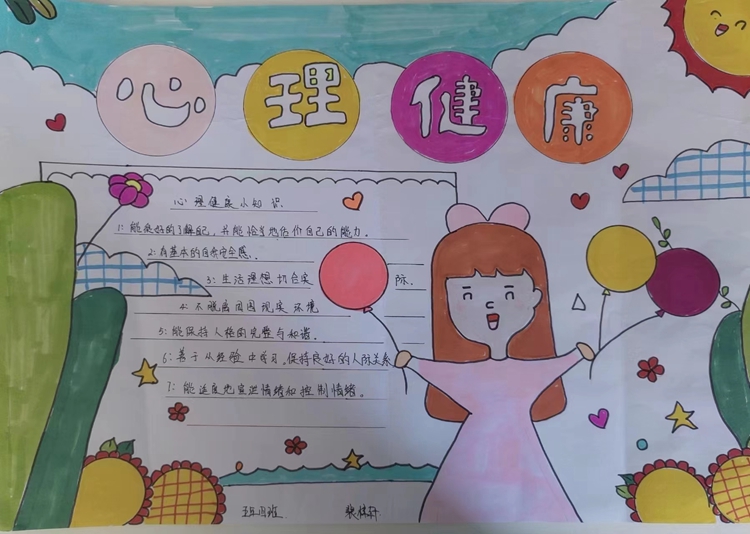 心理健康
心理健康小知识
1: 能很好的了解自己,并能恰当地估价自己的能力。
2: 有基本的自然安全感.
3: 生活理想切合实际.
4: 不脱离周围现实环境
5: 能保持人格的完整与和谐.
6: 善于从经验中学习.保持良好的人际关系
7: 能适度地宣泄情绪和控制情绪。